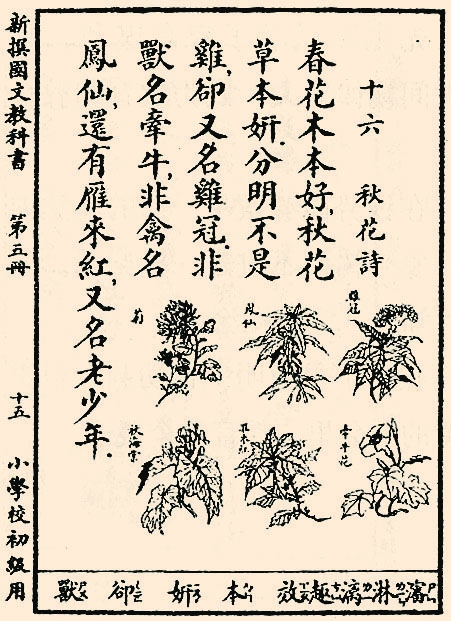 十六　秋花詩
春花木本好，秋花
草本妍．分明不是
雞，卻又名雞冠．非
獸名牽牛，非禽名
鳳仙，還有雁來紅，又名老少年．
雞冠
鳳仙
菊
牽牛花
雁來紅
秋海棠
瀋淋漓趣效本妍卻獸
新撰國文教科書　第五冊　十五　小學校初級用